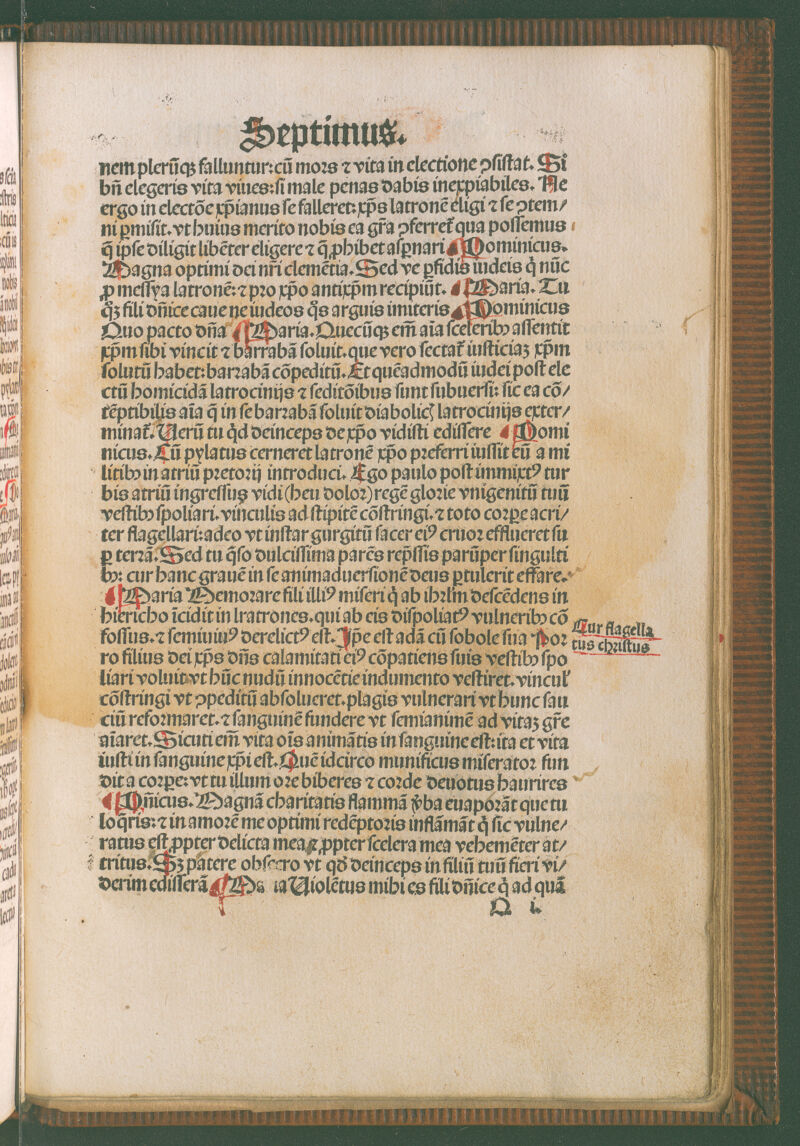 Septimus.
nem plerūqꝫ falluntur: cū mors ⁊ vita in electione ꝯsistat. Si
bn̄ elegeris vita viues: si male penas dabis inexpiabiles. Ne
ergo in electōe xp̄ianus se falleret: xp̄s latronē eligi ⁊ se ꝯtem/
ni ꝑmisit. vt huius merito nobis ea gr̄a ꝯferret᷑ qua possemus
q̄ ip̄se diligit libēter eligere ⁊ q̄ ꝓhibet asꝑnari ¶ Dominicus.
Magna optimi dei nr̄i clemētia. Sed ve ꝑfidis iudeis q̇ nūc
ꝓ messya latronē: ⁊ pro xp̄o antixp̄m recipiūt. ¶ Maria. Tu
qꝫ fili dn̄ice caue ne iudeos q̄s arguis imiteris ¶ Dominicus
Quo pacto dn̄a ¶ Maria. Quecūqꝫ em̄ aīa sceleribꝰ assentit
xp̄m sibi vincit ⁊ barrabā soluit. que vero sectat᷑ iusticiaꝫ xp̄m
solutū habet: barrabā cōpeditū. Et quēadmodū iudei post ele
ctū homicidā latrocinijs ⁊ seditōibus sunt subuersi: sic ea cō/
tēptibilis aīa q̄ in se barrabā soluit diabolicꝭ latrocinijs exter/
minat᷑. Uerū tu qd̄ deinceps de xp̄o vidisti edissere ¶ Domi
nicus. Cū pylatus cerneret latronē xp̄o preferri iussit eū a mi
litibꝰ in atriū pretorij introduci. Ego paulo post immixtꝰ tur
bis atriū ingressus vidi (heu dolor) regē glorie vnigenitū tuū
vestibꝰ spoliari. vinculis ad stipitē cōstringi. ⁊ toto corꝑe acri/
ter flagellari: adeo vt instar gurgitū sacer eiꝰ cruor efflueret su
ꝑ terrā. Sed tu q̄so dulcissima parēs rep̄ssis parūper singulti
bꝰ: cur hanc grauē in se animaduersionē deus ꝑtulerit effare.
¶ Maria Memorare fili illiꝰ miseri q̇ ab ihrl̄m descēdens in
hiericho īcidit in lratrones. qui ab eis dispoliatꝰ vulneribꝰ cō
fossus. ⁊ semiuiuꝰ derelictꝰ est. Ip̄e est adā cū sobole sua Por
ro filius dei xp̄s dn̄s calamitati eiꝰ cōpatiens suis vestibꝰ spo
liari voluit: vt hūc nudū innocētie indumento vestiret. vincul̕
cōstringi vt ꝯpeditū absolueret. plagis vulnerari vt hunc sau
ciū reformaret. ⁊ sanguinē fundere vt semianimē ad vitaꝫ gr̄e
aīaret. Sicuti em̄ vita oīs animātis in sanguine est: ita et vita
iusti in sanguine xp̄i est. Quē idcirco munificus miserator fun
dit a corꝑe: vt tu illum ore biberes ⁊ corde deuotus haurires
¶ Dn̄icus. Magnā charitatis flammā v̄ba euaporāt que tu
loq̄ris: ⁊ in amorē me optimi redēptoris inflāmāt q̇ sic vulne/
ratus est ꝓpter delicta mea ⁊ ꝓpter scelera mea vehemēter at/
tritus. Sꝫ patere obsecro vt qd̄ deinceps in filiū tuū fieri vi/
derim edisserā ¶ Ma ia Uiolētus mihi es fili dn̄ice q̇ ad quā
Q i.
Cur flagella
tus christus